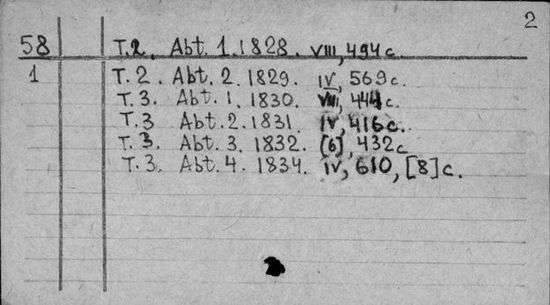 2
58 Т.2. Abt. 1. 1828. VIII, 494 с.
1 Т. 2. Abt. 2. 1829. IV, 569 с.
Т. 3. Abt. 1. 1830. VIII, 444 с.
Т. 3 Abt. 2. 1831. IV, 416 с.
Т. 3. Abt. 3. 1832. [6], 432 с
Т. 3. Abt. 4. 1834. IV, 610, [8] с.